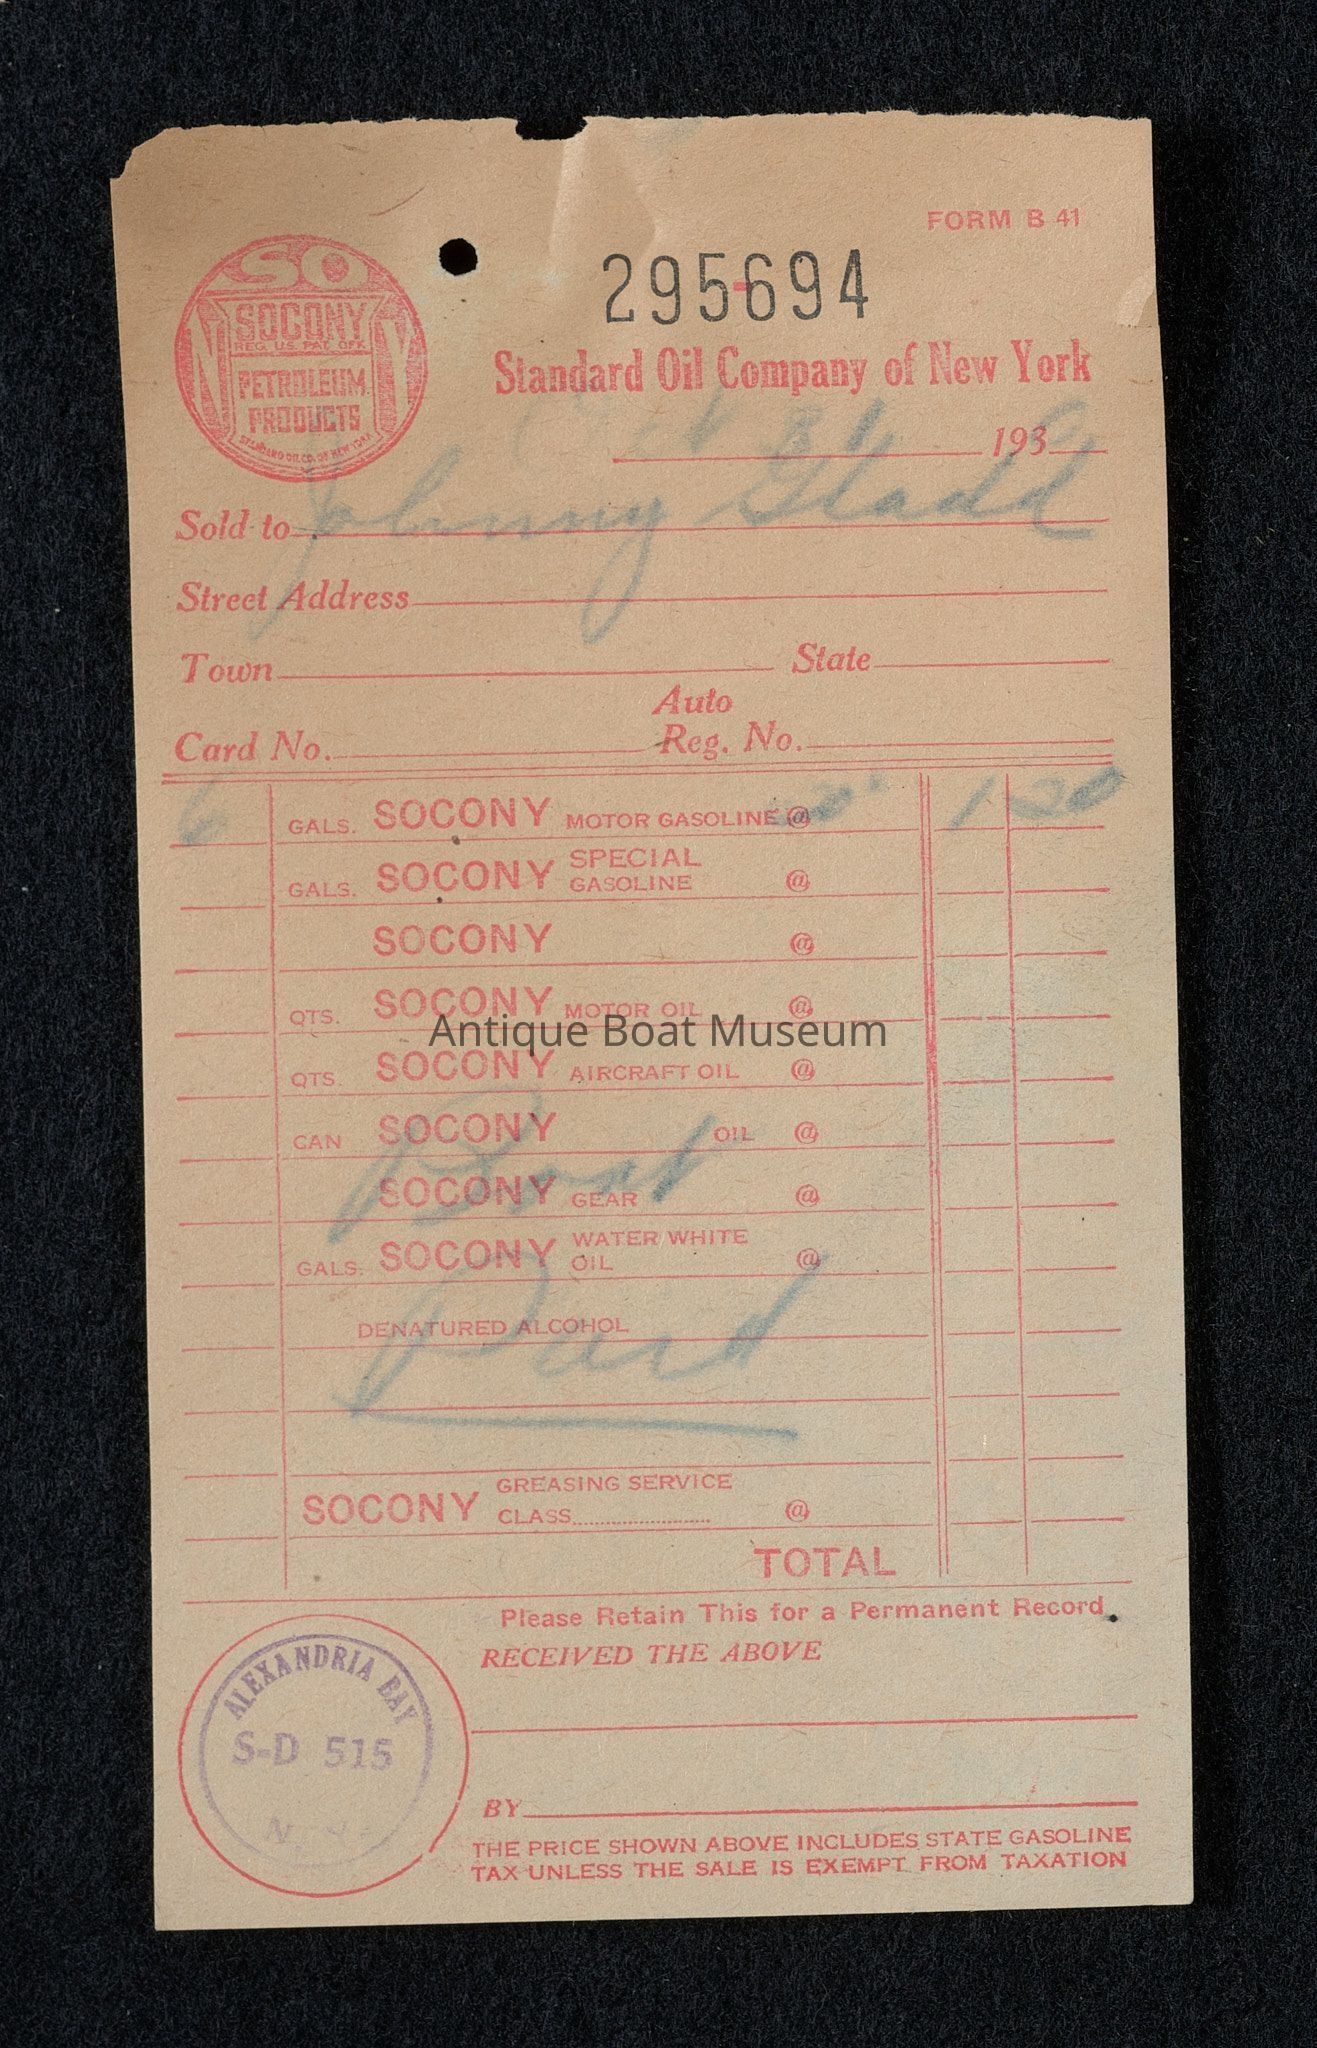 FORM B 41
295694
SO
SOCONY
REG. U.S. PAT. OFF.
PETROLEUM
PRODUCTS
STANDARD OIL CO. OF NEW YORK
NY
Standard Oil Company of New York
193
Sold to Johnny
Street Address
Town State
Auto
Card No. Reg. No.
6 GALS. SOCONY MOTOR GASOLINE @ 20 1 20
GALS. SOCONY SPECIAL GASOLINE @
SOCONY @
QTS. SOCONY MOTOR OIL @
Antique Boat Museum
QTS. SOCONY AIRCRAFT OIL @
CAN SOCONY OIL @
Boat
SOCONY GEAR @
GALS. SOCONY WATER WHITE OIL @
DENATURED ALCOHOL
Paid
SOCONY GREASING SERVICE
CLASS @
TOTAL
Please Retain This for a Permanent Record.
RECEIVED THE ABOVE
ALEXANDRIA BAY
S-D 515
N.Y.
BY
THE PRICE SHOWN ABOVE INCLUDES STATE GASOLINE
TAX UNLESS THE SALE IS EXEMPT FROM TAXATION